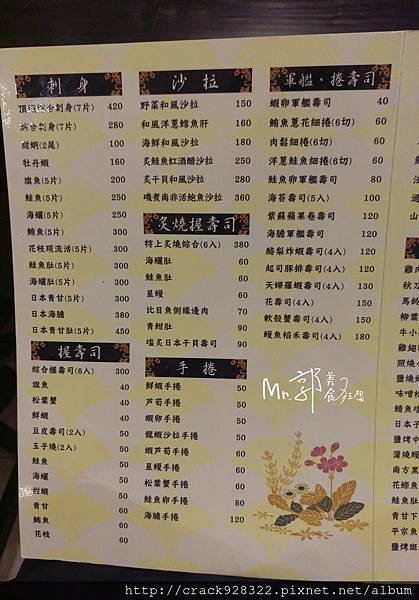 刺身
頂級綜合刺身(7片) 420
綜合刺身(7片) 280
甜蝦(2尾) 100
牡丹蝦 160
旗魚(5片) 200
鮭魚(5片) 250
海鱺(5片) 250
鮪魚(5片) 300
花枝現流活(5片) 300
鮭魚肚(5片) 300
海鱺肚(5片) 300
日本青甘(5片) 300
日本海膽 380
日本青甘肚(5片) 450
握壽司
綜合握壽司(6入) 300
旗魚 40
松葉蟹 40
鮮蝦 40
豆皮壽司(2入) 50
玉子燒(2入) 50
鮭魚 50
海鱺 50
甜蝦 50
青甘 60
鮪魚 60
花枝 60
沙拉
野菜和風沙拉 150
和風洋蔥鱈魚肝 160
海鮮和風沙拉 180
炙鮭魚紅酒醋沙拉 250
炙干貝和風沙拉 250
磯煮南非活鮑魚沙拉 350
炙燒握壽司
特上炙燒綜合(6入) 380
海鱺肚 60
鮭魚肚 60
星鰻 60
比目魚側緣邊肉 70
青魽肚 90
塩炙日本干貝壽司 90
手捲
鮮蝦手捲 50
芦筍手捲 50
蝦卵手捲 50
龍蝦沙拉手捲 50
蝦芦筍手捲 60
星鰻手捲 60
松葉蟹手捲 60
鮭魚卵手捲 80
海膽手捲 120
軍艦·捲壽司
蝦卵軍艦壽司 40
鮪魚蔥花細捲(6切) 60
肉鬆細捲(6切) 60
洋蔥鮭魚細捲(6切) 60
鮭魚卵軍艦壽司 80
海苔壽司(5入) 100
紫蘇蘋果卷壽司 120
海膽軍艦壽司 120
酪梨炸蝦壽司(4入) 130
起司豚排壽司(4入) 130
天婦羅蝦壽司(4入) 130
花壽司(4入) 150
軟殼蟹壽司(4入) 150
鰻魚稻禾壽司(4入) 180
Mr.郭 美食狂想
http://crack928322.pixnet.net/album